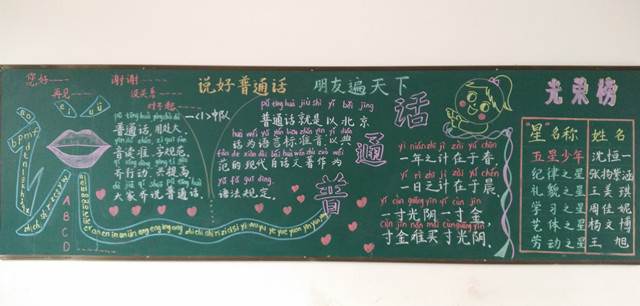 您好----
再见----
谢谢----
没关系----
对不起----
说好普通话 朋友遍天下
一(1)中队
普通话,用处大,
音标准,字规范。
齐行动,共提高,
大家齐说普通话。
pǔ tōng huà jiù shì yǐ běi jīng
普通话就是以北京
话为语言标准音,以
范的现代白话文著作为
yǔ fǎ guī dìng
语法规定。
话
通
普
yì nián zhī jì zài yú chūn
一年之计在于春,
yí rì zhī jì zài yú chén
一日之计在于晨。
yí cùn guāng yīn yí cùn jīn
一寸光阴一寸金,
cùn jīn nán mǎi cùn guāng yīn
寸金难买寸光阴。
光荣榜
"星"名称 姓名
五星少年 沈恒一
纪律之星
礼貌之星 王美琪
学习之星 周佳妮
艺体之星 杨文博
劳动之星 王旭
A
B
C
D